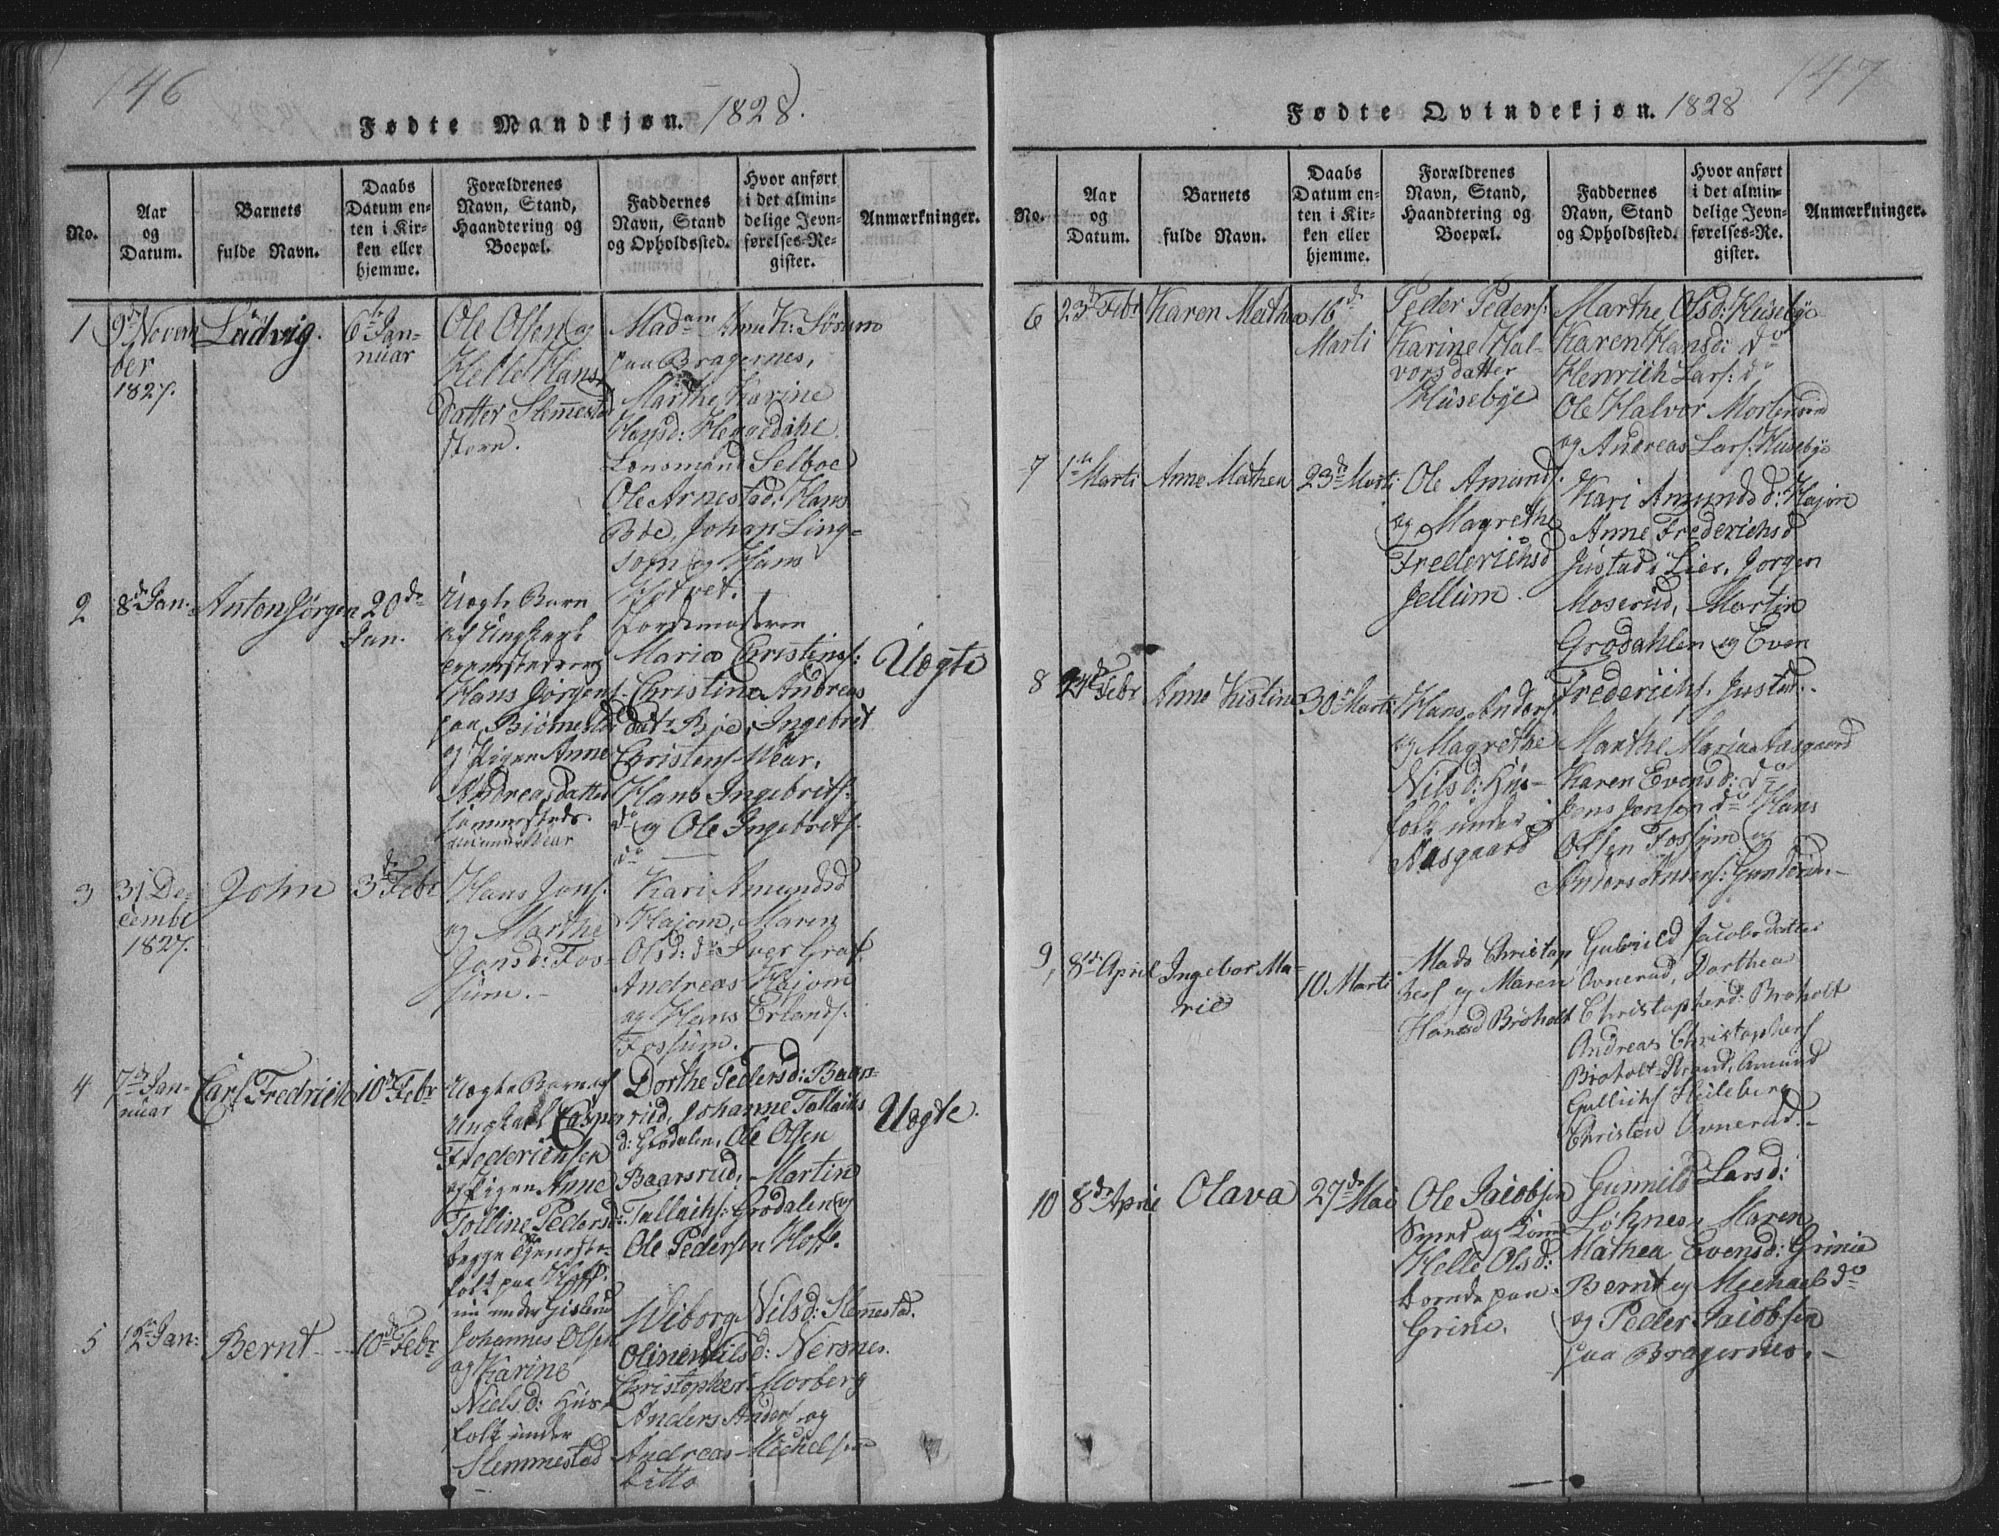 146
Fødte Mandkjøn. 1828.
No.
Aar
og
Datum.
Barnets
fulde Navn.
Daabs
Datum en-
ten i Kir-
ken eller
hjemme.
Forældrenes
Navn, Stand,
Haandtering og
Boepæl.
Faddernes
Navn, Stand
og Opholdssted.
Hvor anført
i det almin-
delige Jevn-
førelses-Re-
gister.
Anmærkninger.
1
9de Novem
ber
1827.
Ludvig.
6te Jan-
nuar
Ole Olsen og
Helle Hans
datter Slemestad
Madam Anne K: Sørum
paa Bragernes,
Marthe Karine
Hansd: Heggedahl
Lensmand Selboe
Ole Arnestad: Hans
Böe, Johan Ling-
som og Hans
2
8de Jan:
Anton Jörgen
20de
Jan.
Uægte Barn
af Ungkarl
Hans Jörgens
paa
og Pigen Anne
Andreasdatter
Maria Christins:
Christine Andreas
datr Böe, Ingebrit
Christens Mear.
Hans Ingebrits:
do og Ole Ingebrits.
do
Uægte
3
31 De-
cembr
1827.
John
3de Febr
Hans Jons.
og Marthe
Jansd: Fos-
sum.
Kari Amundsd
Hajom, Maren
Olsd: do Iver Graf
Andreas Hajom
og Hans Erlands.
Fossum.
4
7de Jan-
nuar
Carl Fredrich
10de Febr
Uægte Barn af
Ungkarl Casper
Frederiksen
og Pigen Anne
Tolline Pedersd:
begge Tjeneste-
folk paa Hoff.
nu under Gisle
Dorthe Pedersd: Baar-
rud, Johanne Tollachs
d: Grodalen, Ole Olsen
Baarsrud, Martin
Tallachs: Grodalen og
Ole Pedersen Hoff.
Uægte.
5
12te Jan:
Bernt
10de Febr
Johannes Olsen
og Karine
Nielsd: Hus-
folk under
Slemmestad
Wiborg Nilsd: Slemmestad.
Oline Nilsd: Nersnes.
Christopher Morberg
Anders Anders. og
Andreas Michelsen
ditto
147
Fødte Qvindekjøn. 1828
No.
Aar
og
Datum.
Barnets
fulde Navn.
Daabs
Datum en-
ten i Kir-
ken eller
hjemme.
Forældrenes
Navn, Stand,
Haandtering og
Boepæl.
Faddernes
Navn, Stand
og Opholdssted.
Hvor anført
i det almin-
delige Jevn-
førelses-Re-
gister.
Anmærkninger.
6
23de Febr
Karen Mathea
16de
Marti
Peder Peders.
Karine Hal-
vorsdatter
Husebye
Marthe Olsd: Husebye
Karen Hansd: do
Henrich Lars: do
Ole Halvor Mortensen
og Andreas Lars: Husebye
7
1te Marti
Anne Mathea
23de Marti
Ole Amunds.
og Magrethe
Frederichsd
Jellum.
Kari Amundsd: Hajom
Anne Frederichsd
Justad Lier, Jorgen
Moserud, Martin
Grodahlen og Even
Frederichs. Justad.
8
24de Febr
Anne Kistine
30te Marti
Hans Anders.
og Magrethe
Nilsd: Hus-
folk under
Aasgaard
Marthe Maria Aasgaard
Karen Evensd: do
Jens Jensen do Hans
Olsen Fossum og
Anders Anders:
9,
8de April
Ingebor Ma-
rie
10 Marti
Mads Christop
hers og Maren
Hansd Broholt
Gulvild Jacobsdatter
Ovnerud, Dorthea
Christopherd: Broholt
Andreas Christophers
Broholt Strand, Amund
Gullichs Heileberg
Christen Ovnerud.
10
8de April
Olava
27de Mai
Ole Jacobsen
Smed og Kone
Helle Olsd:
boende paa
Grini.
Gunnild Larsd:
Løknes, Maren
Mathea Evensd: Grinie
Bernt og Michael do
og Peder Jacobsen
paa Bragernes.